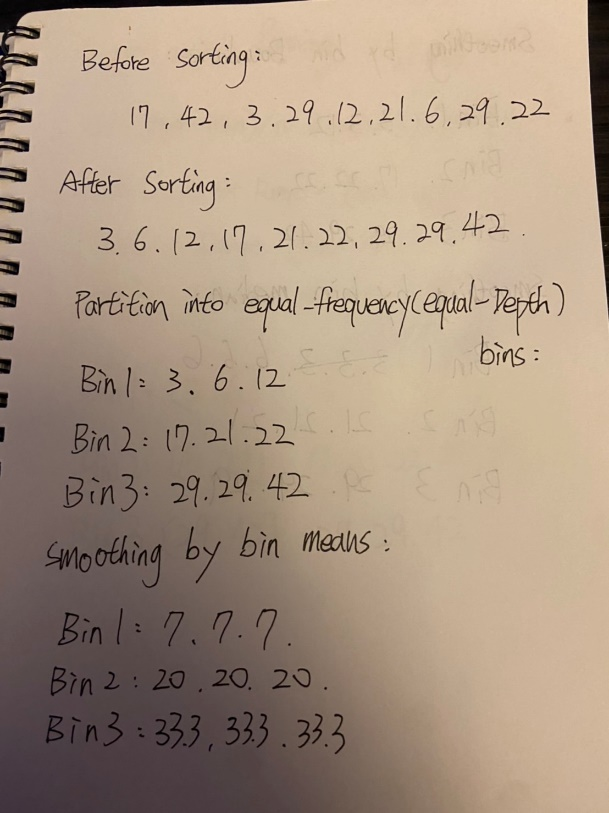 Before Sorting:
17, 42, 3. 29. 12, 21. 6, 29. 22
After Sorting:
3. 6. 12, 17, 21. 22, 29. 29. 42.
Partition into equal-frequency(equal-Depth)
bins:
Bin 1: 3. 6. 12
Bin 2: 17. 21. 22
Bin 3: 29. 29. 42
Smoothing by bin means:
Bin 1: 7. 7. 7.
Bin 2: 20. 20. 20.
Bin 3: 33.3, 33.3. 33.3